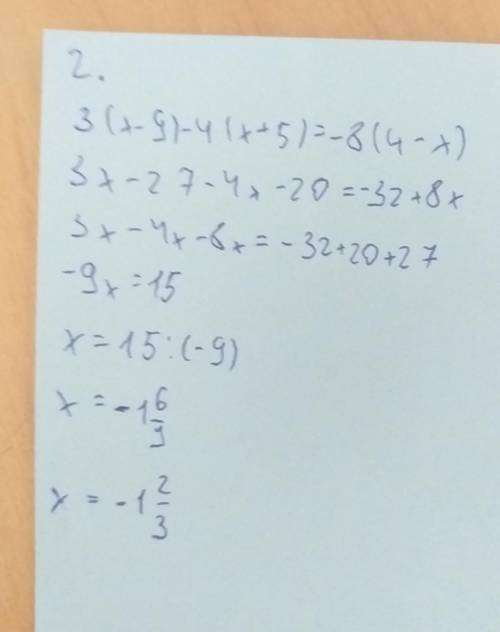 2.
3(x-9)-4(x+5)=-8(4-x)
3x-27-4x-20=-32+8x
3x-4x-8x=-32+20+27
-9x=15
x=15:(-9)
x=-1 6/9
x=-1 2/3